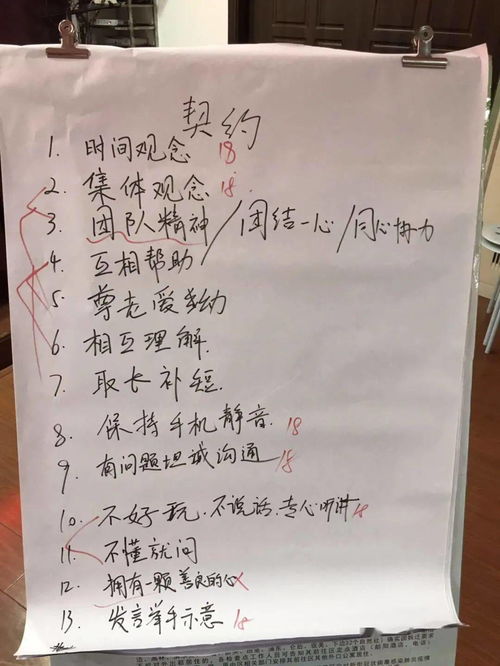 契约
1. 时间观念 18
2. 集体观念 18
3. 团队精神/团结一心/同心协力
4. 互相帮助
5. 尊老爱幼
6. 相互理解.
7. 取长补短.
8. 保持手机静音. 18
9. 有问题坦诚沟通 18
10. 不好玩.不说话.专心听讲 18
11. 不懂就问
12. 拥有一颗善良的心
13. 发言举手示意 18